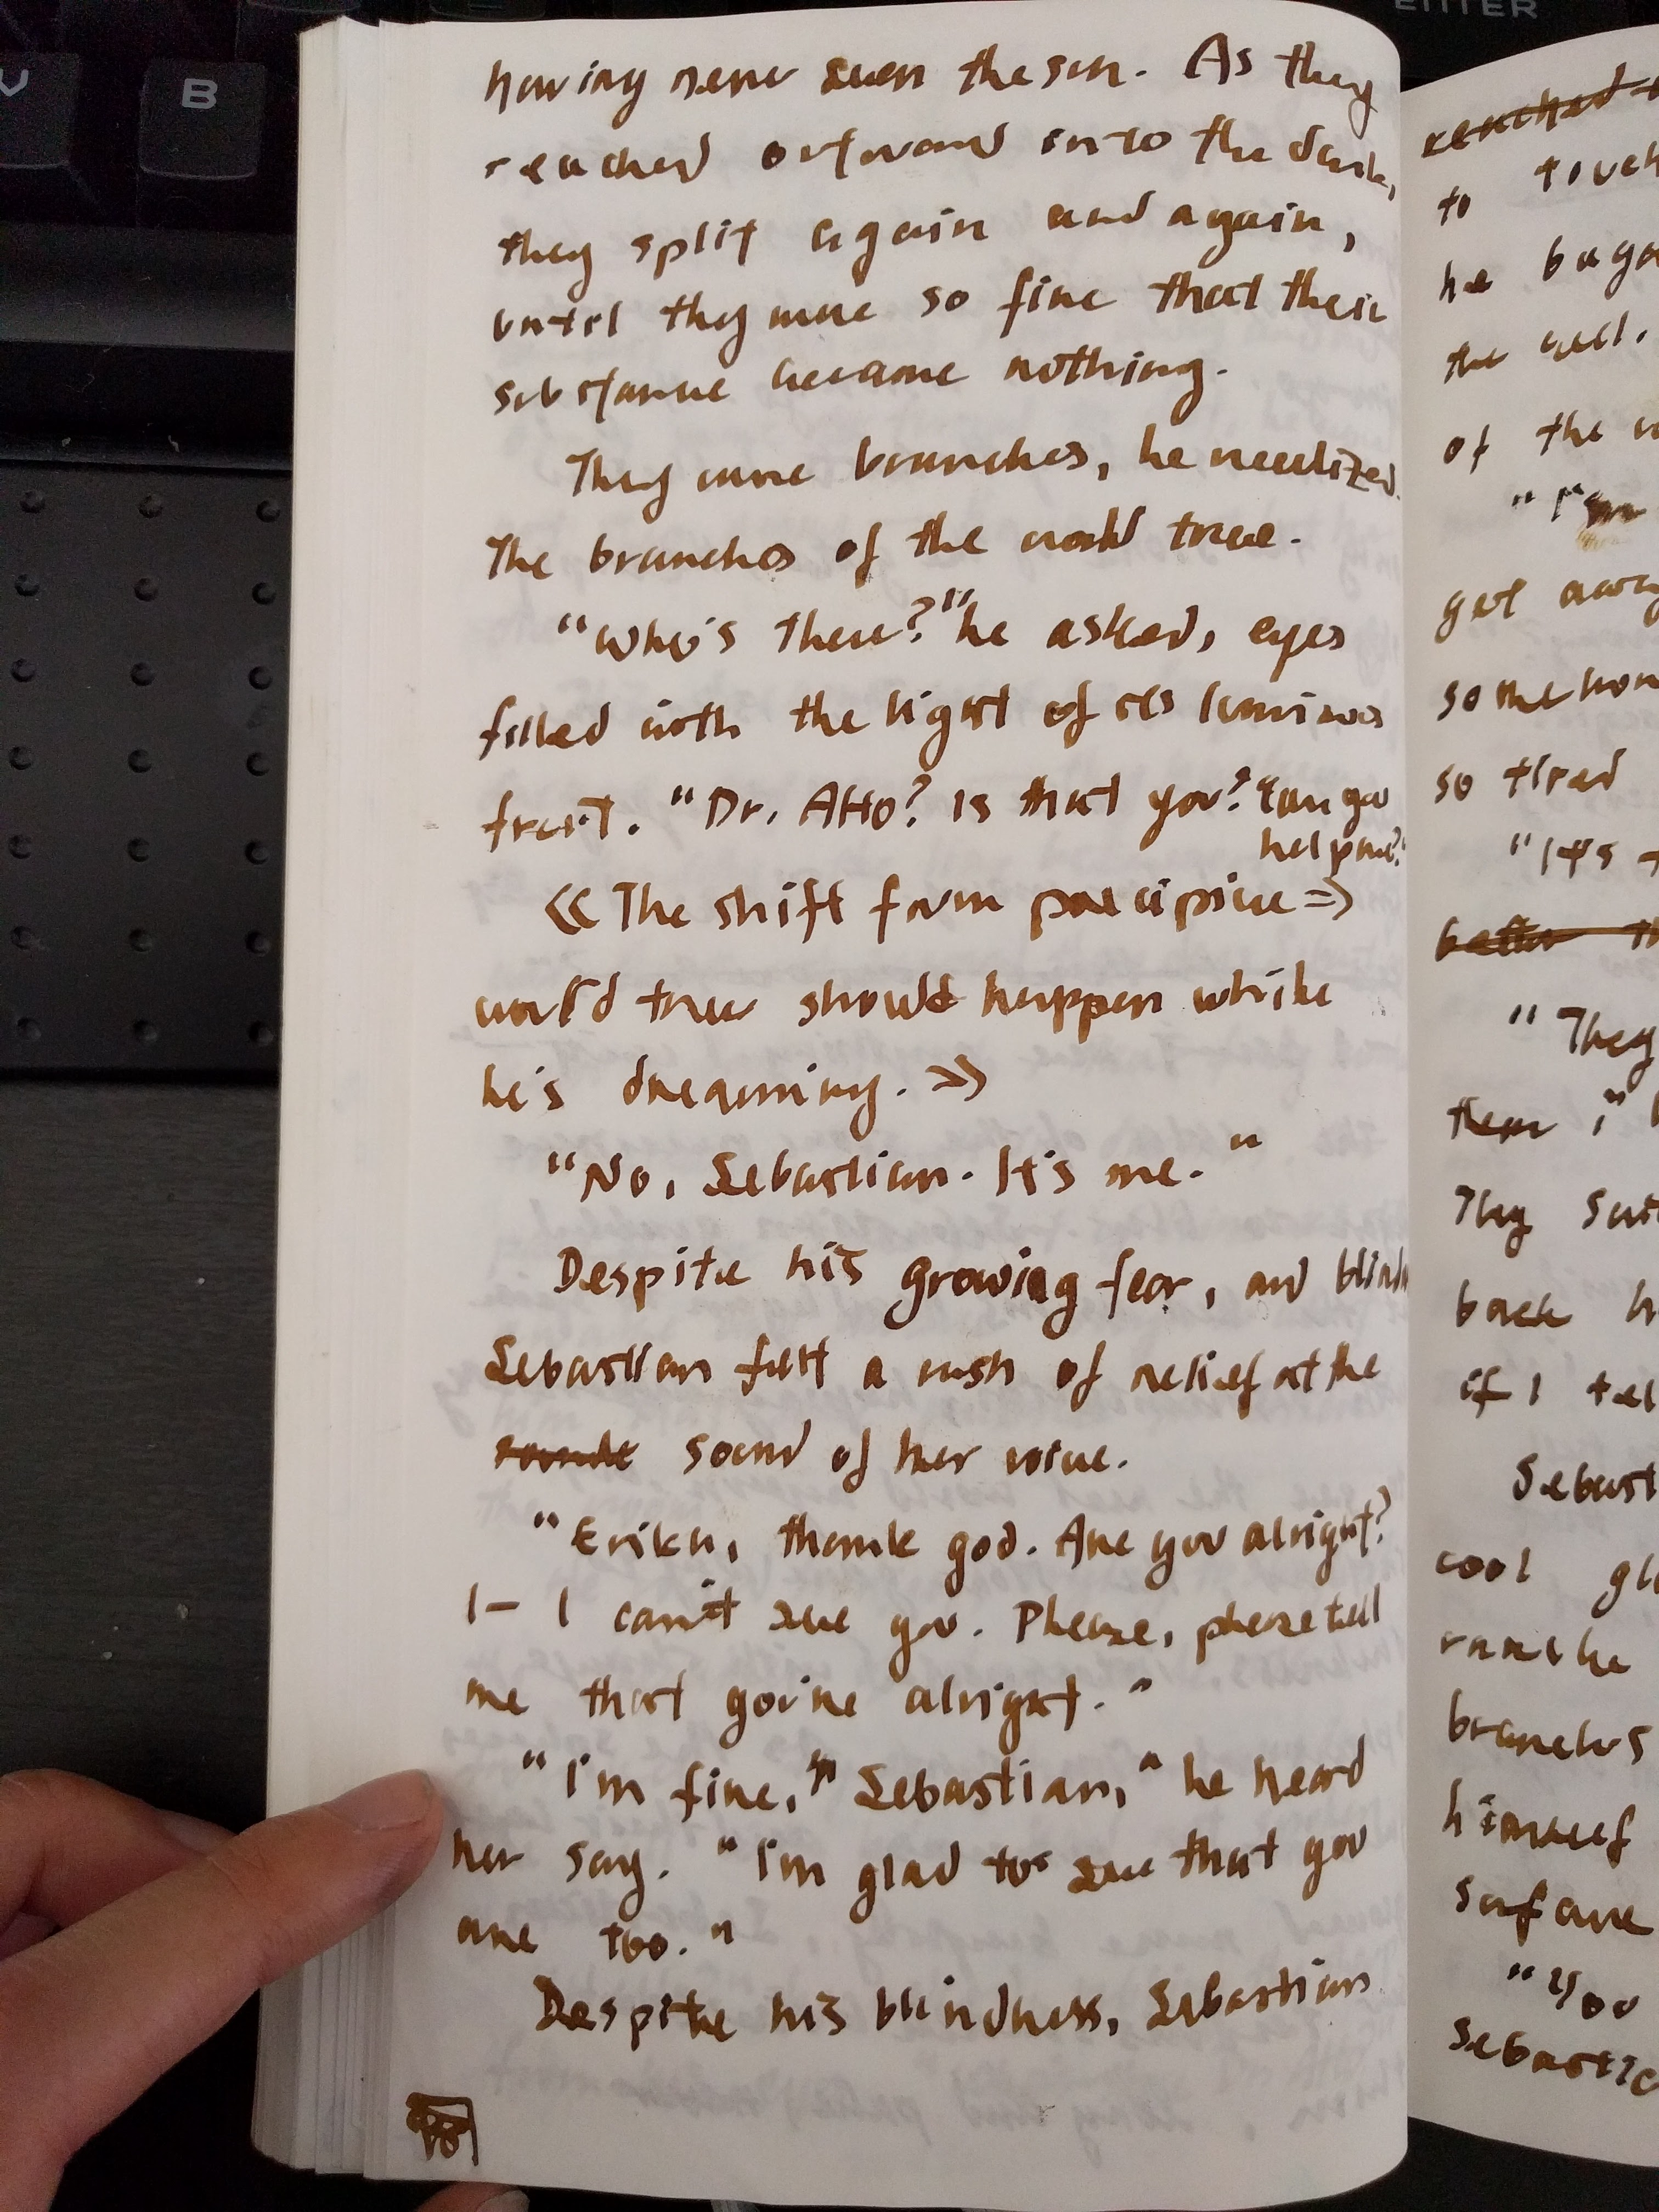 having never seen the sun. As they
reached outward into the dark,
they split again and again,
until they were so fine that their
substance became nothing.
They were branches, he realized.
The branches of the world tree.
"Who's there?" he asked, eyes
filled with the light of its luminous
"Dr. Atto? Is that you? Can you
help me?"
<< The shift form precipice =>
world tree should happen while
he's dreaming. >>
"No, Sebastian. It's me."
Despite his growing fear, and
Sebastian felt a rush of relief at the
sound of her voice.
"Erika, thank god. Are you alright?
I- I can't see you. Please, please tell
me that you're alright."
"I'm fine, Sebastian," he heard
her say. "I'm glad to see that you
are too."
Despite his blindness, Sebastian
reached
to touch
he
the well.
of the
"I'm
get away
so
so tired
"It's
better
"They
them,"
They
back
if I
cool
branches
himself
surface
"You
V
B
ENTER